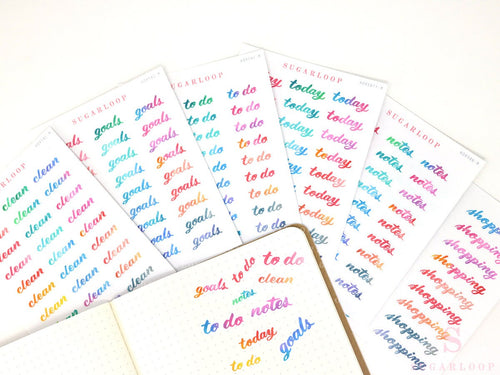 SUGARLOOP
SUGARLOOP
SUGARLOOP
SUGARLOOP
clean clean
clean clean clean
clean clean clean
clean clean clean
clean clean clean
clean clean clean
clean clean
goals goals
goals goals
goals goals
goals goals
goals goals
goals goals
goals goals
goals goals
goals goals
to do to do
to do to do
to do to do
to do to do
to do to do
to do to do
to do to do
to do to do
to do
today today
today today
today today
today today
today today
today today
today today
today
today
notes notes
notes notes
notes notes
notes notes
notes notes
notes notes
notes
shopping
shopping
shopping
shopping
shopping
shopping
shopping
shopping
goals to do to do
clean
notes
to do notes
today
to do goals
S
GARLOOP